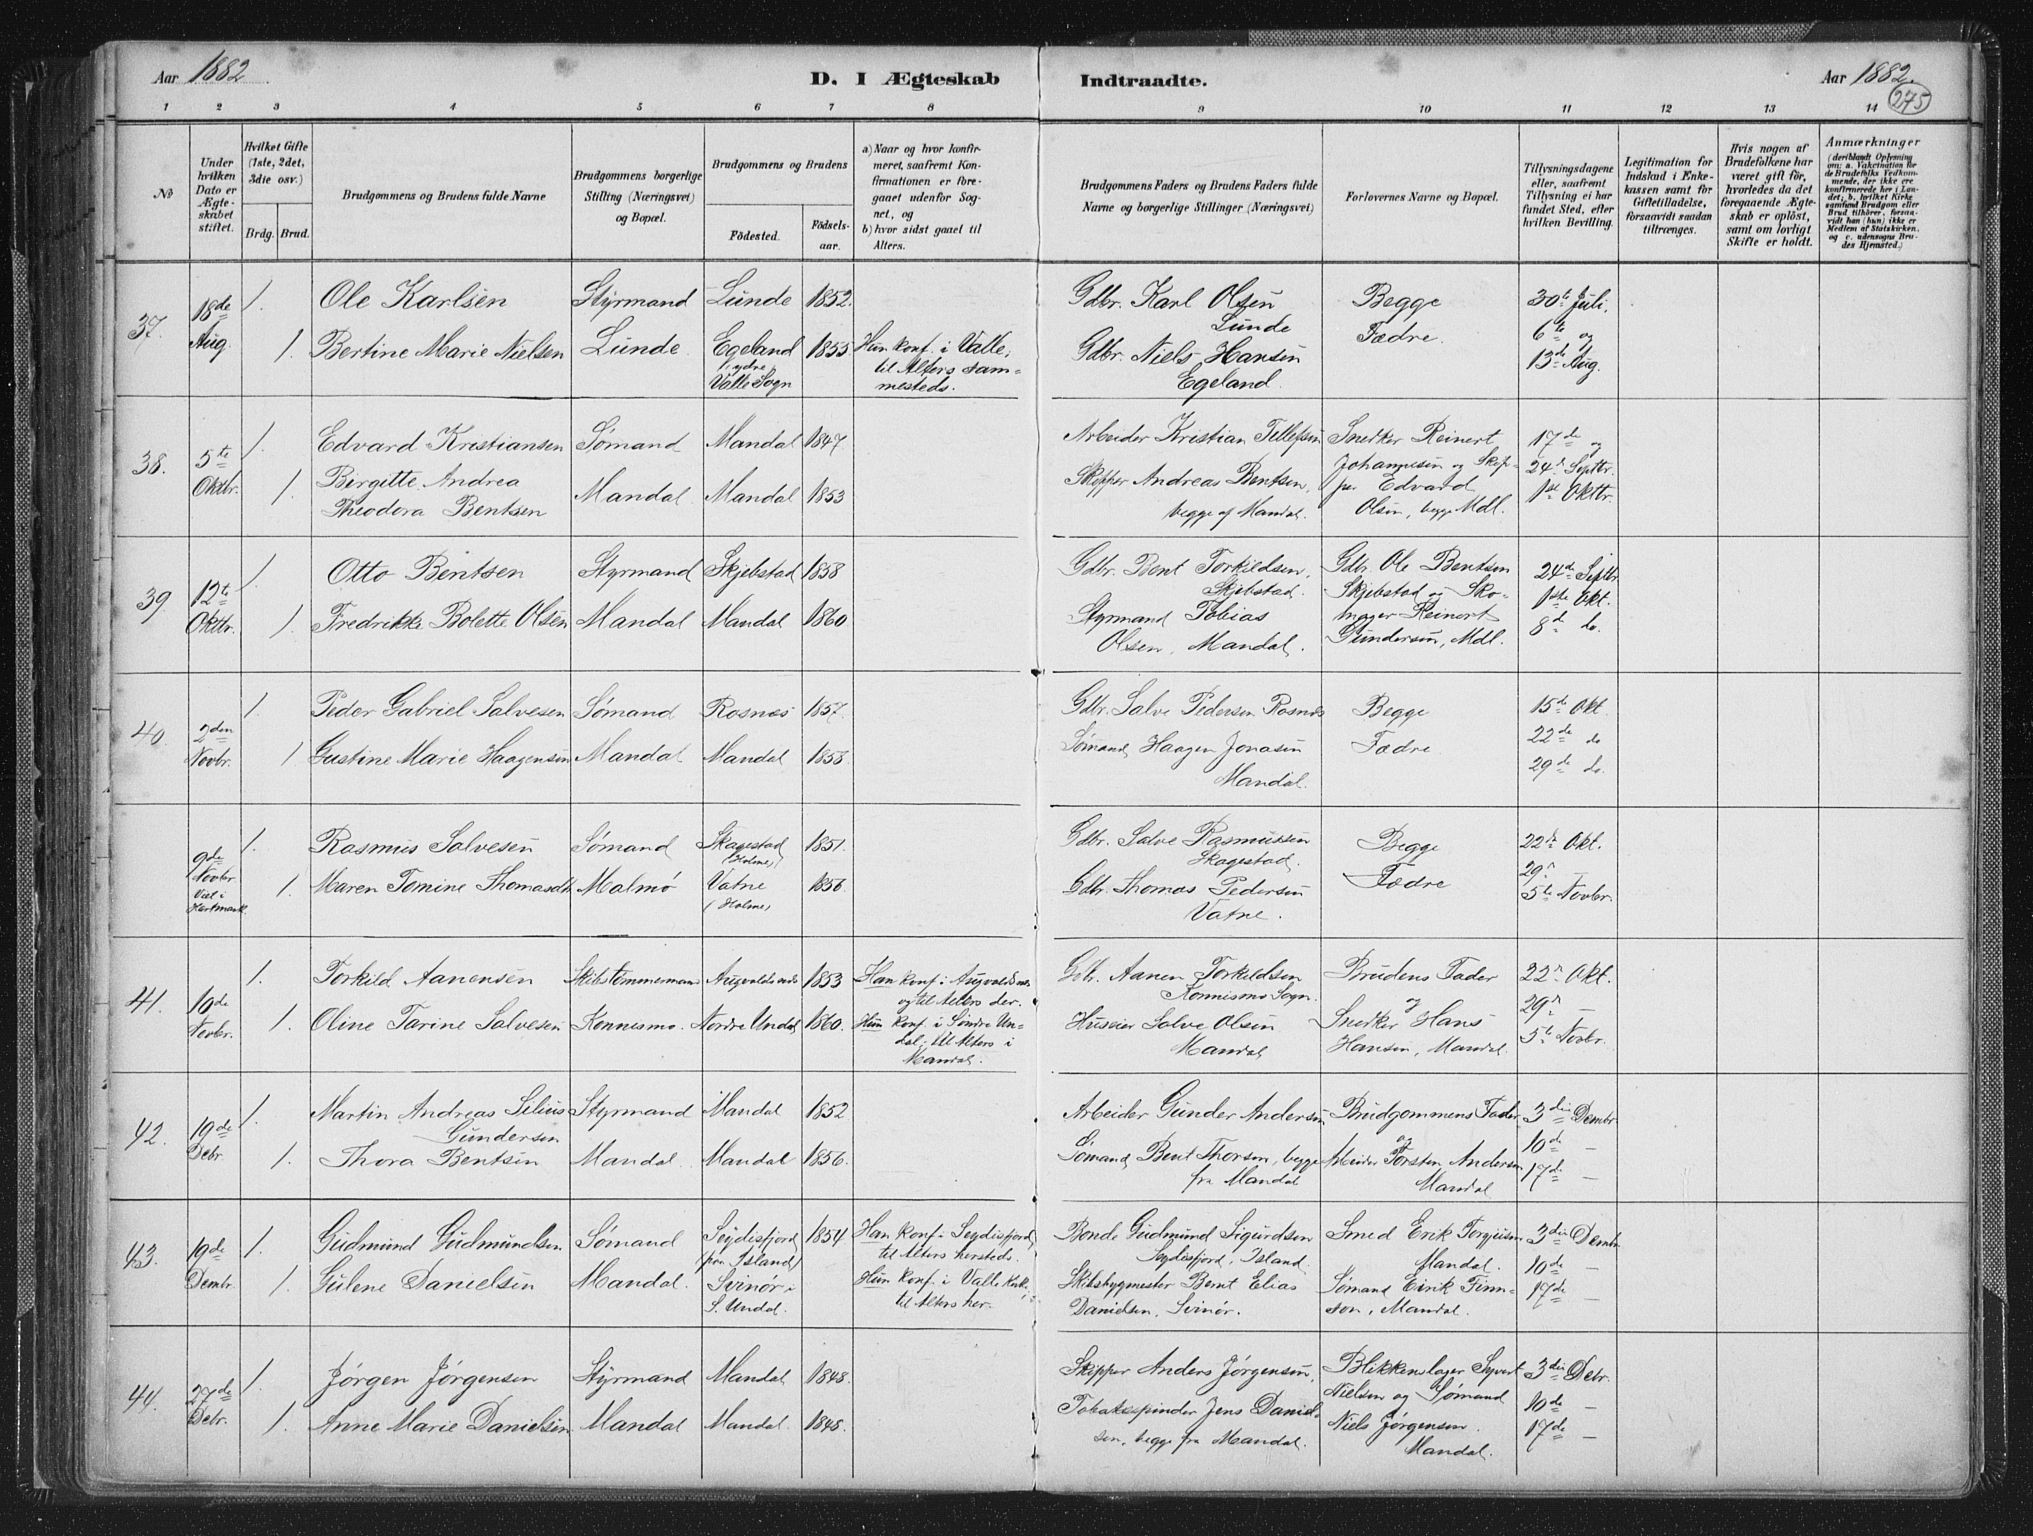 Aar 1882
D. I Ægteskab
Indtraadte.
Aar 1882.
275
1 2 3 4 5 6 7 8 9 10 11 12 13 14
No
Under hvilken Dato er Ægteskabet stiftet.
Hvilket Gifte (1ste, 2det, 3die osv.)
Brdg. Brud.
Brudgommens og Brudens fulde Navne
Brudgommens borgerlige Stilling (Næringsvei) og Bopæl.
Brudgommens og Brudens
Födested.
Födselsaar.
a) Naar og hvor konfirmeret, saafremt Konfirmationen er foregaaet udenfor Sognet, og
b) hvor sidst gaaet til Alters.
Brudgommens Faders og Brudens Faders fulde Navne og borgerlige Stillinger (Næringsvei)
Forlovernes Navne og Bopæl.
Tillysningsdagene eller, saafremt Tillysning ei har fundet Sted, efter hvilken Bevilling.
Legitimation for Indskud i Enkekassen samt for Giftetilladelse, forsaavidt saadan tiltrænges.
Hvis nogen af Brudefolkene har været gift för, hvorledes da det foregaaende Ægteskab er oplöst, samt om lovligt Skifte er holdt.
Anmærkninger
(deriblandt Oplysning om: a. Vakcination for de Brudefolks Vedkommende, der ikke ere konfirmerede her i Landet; b. hvilket Kirkesamfund Brudgom eller Brud tilhörer, forsaavidt han (hun) ikke er Medlem af Statskirken, og c. udensogns Brudes Hjemsted.)
37. 18de Aug.
1. Ole Karlsen Styrmand Lunde 1852.
1. Bertine Marie Nielsen Lunde. Egeland i ydre Valle Sogn 1855
Hun konf. i Valle, til Alters sammesteds.
Gdbr. Karl Olsen Lunde
Gdbr. Niels Hansen Egeland.
Begge Fædre.
30te Juli,
6te og
13de Aug.
38. 5te Oktbr.
1. Edvard Kristiansen Sømand Mandal 1847.
1. Birgitte Andrea Theodora Bentsen Mandal Mandal 1853
Arbeider Kristian Tellefsen
Skipper Andreas Bentsen, begge af Mandal.
Snedker Reinert Johannesen og Skipper Edvard Olsen, begge Mdl.
17de og
24de Septbr.
1ste Oktbr.
39 12te Oktbr.
1. Otto Bentsen Styrmand Skjebstad 1858
1. Fredrikke Bolette Olsen Mandal Mandal 1860
Gdbr. Bent Torkildsen, Skjebstad.
Styrmand Tobias Olsen, Mandal.
Gdbr. Ole Bentsen Skjebstad og Skomager Reinert Gundersen, Mdl.
24de Septbr.
1ste Okt.
8de do.
40 2den Novbr.
1. Peder Gabriel Salvesen Sømand Rosnæs 1857.
1 Gustine Marie Haagensen Mandal Mandal 1858
Gdbr. Salve Pedersen Rosnæs
Sømand Haagen Jonasen Mandal.
Begge Fædre
15de Okt
22de do
29de do.
9de Novbr Viet i Hartmark
1. Rasmus Salvesen Sømand Skagestad (Holme) 1851.
1. Maren Tomine Thomasdt. Malmø Vatne (Holme) 1856
Gdbr. Salve Rasmussen Skagestad.
Gdbr. Thomas Pedersen Vatne.
Begge Fædre
22de Okt.
29de
5te Novbr.
41. 10de Novbr.
1. Torkild Aanensen Skibstømmermand Augvaldsnæs 1853
1. Oline Tarine Salvesen Konnesmo. Nordre Undal 1860.
Han konf. i Augvaldsnæs og til Alters der.
Hun konf. i Søndre Undal, til Alters i Mandal.
Gdbr. Aanen Torkildsen Konnismo Sogn.
Huseier Salve Olsen Mandal
Brudens Fader og Snedker Hans Hansen, Mandal.
22de Okt.
29de —
5te Novbr.
42. 19de Debr.
1. Martin Andreas Selius Gundersen Styrmand Mandal 1852
1. Thora Bentsen Mandal. Mandal 1856.
Arbeider Gunder Andersen
Sømand Bent Thorsen, begge fra Mandal
Brudgommens Fader og Arbeider Torsten Andersen Mandal
3die Dembr.
10de —
17de —
43. 19de Dembr.
1. Gudmund Gudmundsen Sømand Seydisfjord (paa Island) 1854
1. Gulene Danielsen Mandal. Svinør i S. Undal.
Han konf. i Seydisfjord, til Alters hersteds.
Hun konf. i Valle, til Alters her.
Bonde Gudmund Sigurdsen Seydisfjord, Island.
Skibsbygmester Bernt Elias Danielsen, Svinør.
Smed Erik Torjusen Mandal.
Sømand Eirik Finnson, Mandal.
3die Dembr.
10de —
17de —
44. 27de Debr.
1. Jørgen Jørgensen Styrmand Mandal 1848.
1. Anne Marie Danielsen Mandal Mandal 1848.
Skipper Anders Jørgensen,
Tobaksspinder Jens Danielsen, begge fra Mandal.
Blikkenslager Syvert Nielsen og Sømand Niels Jørgensen. Mandal.
3die Debr.
10de —
17de —